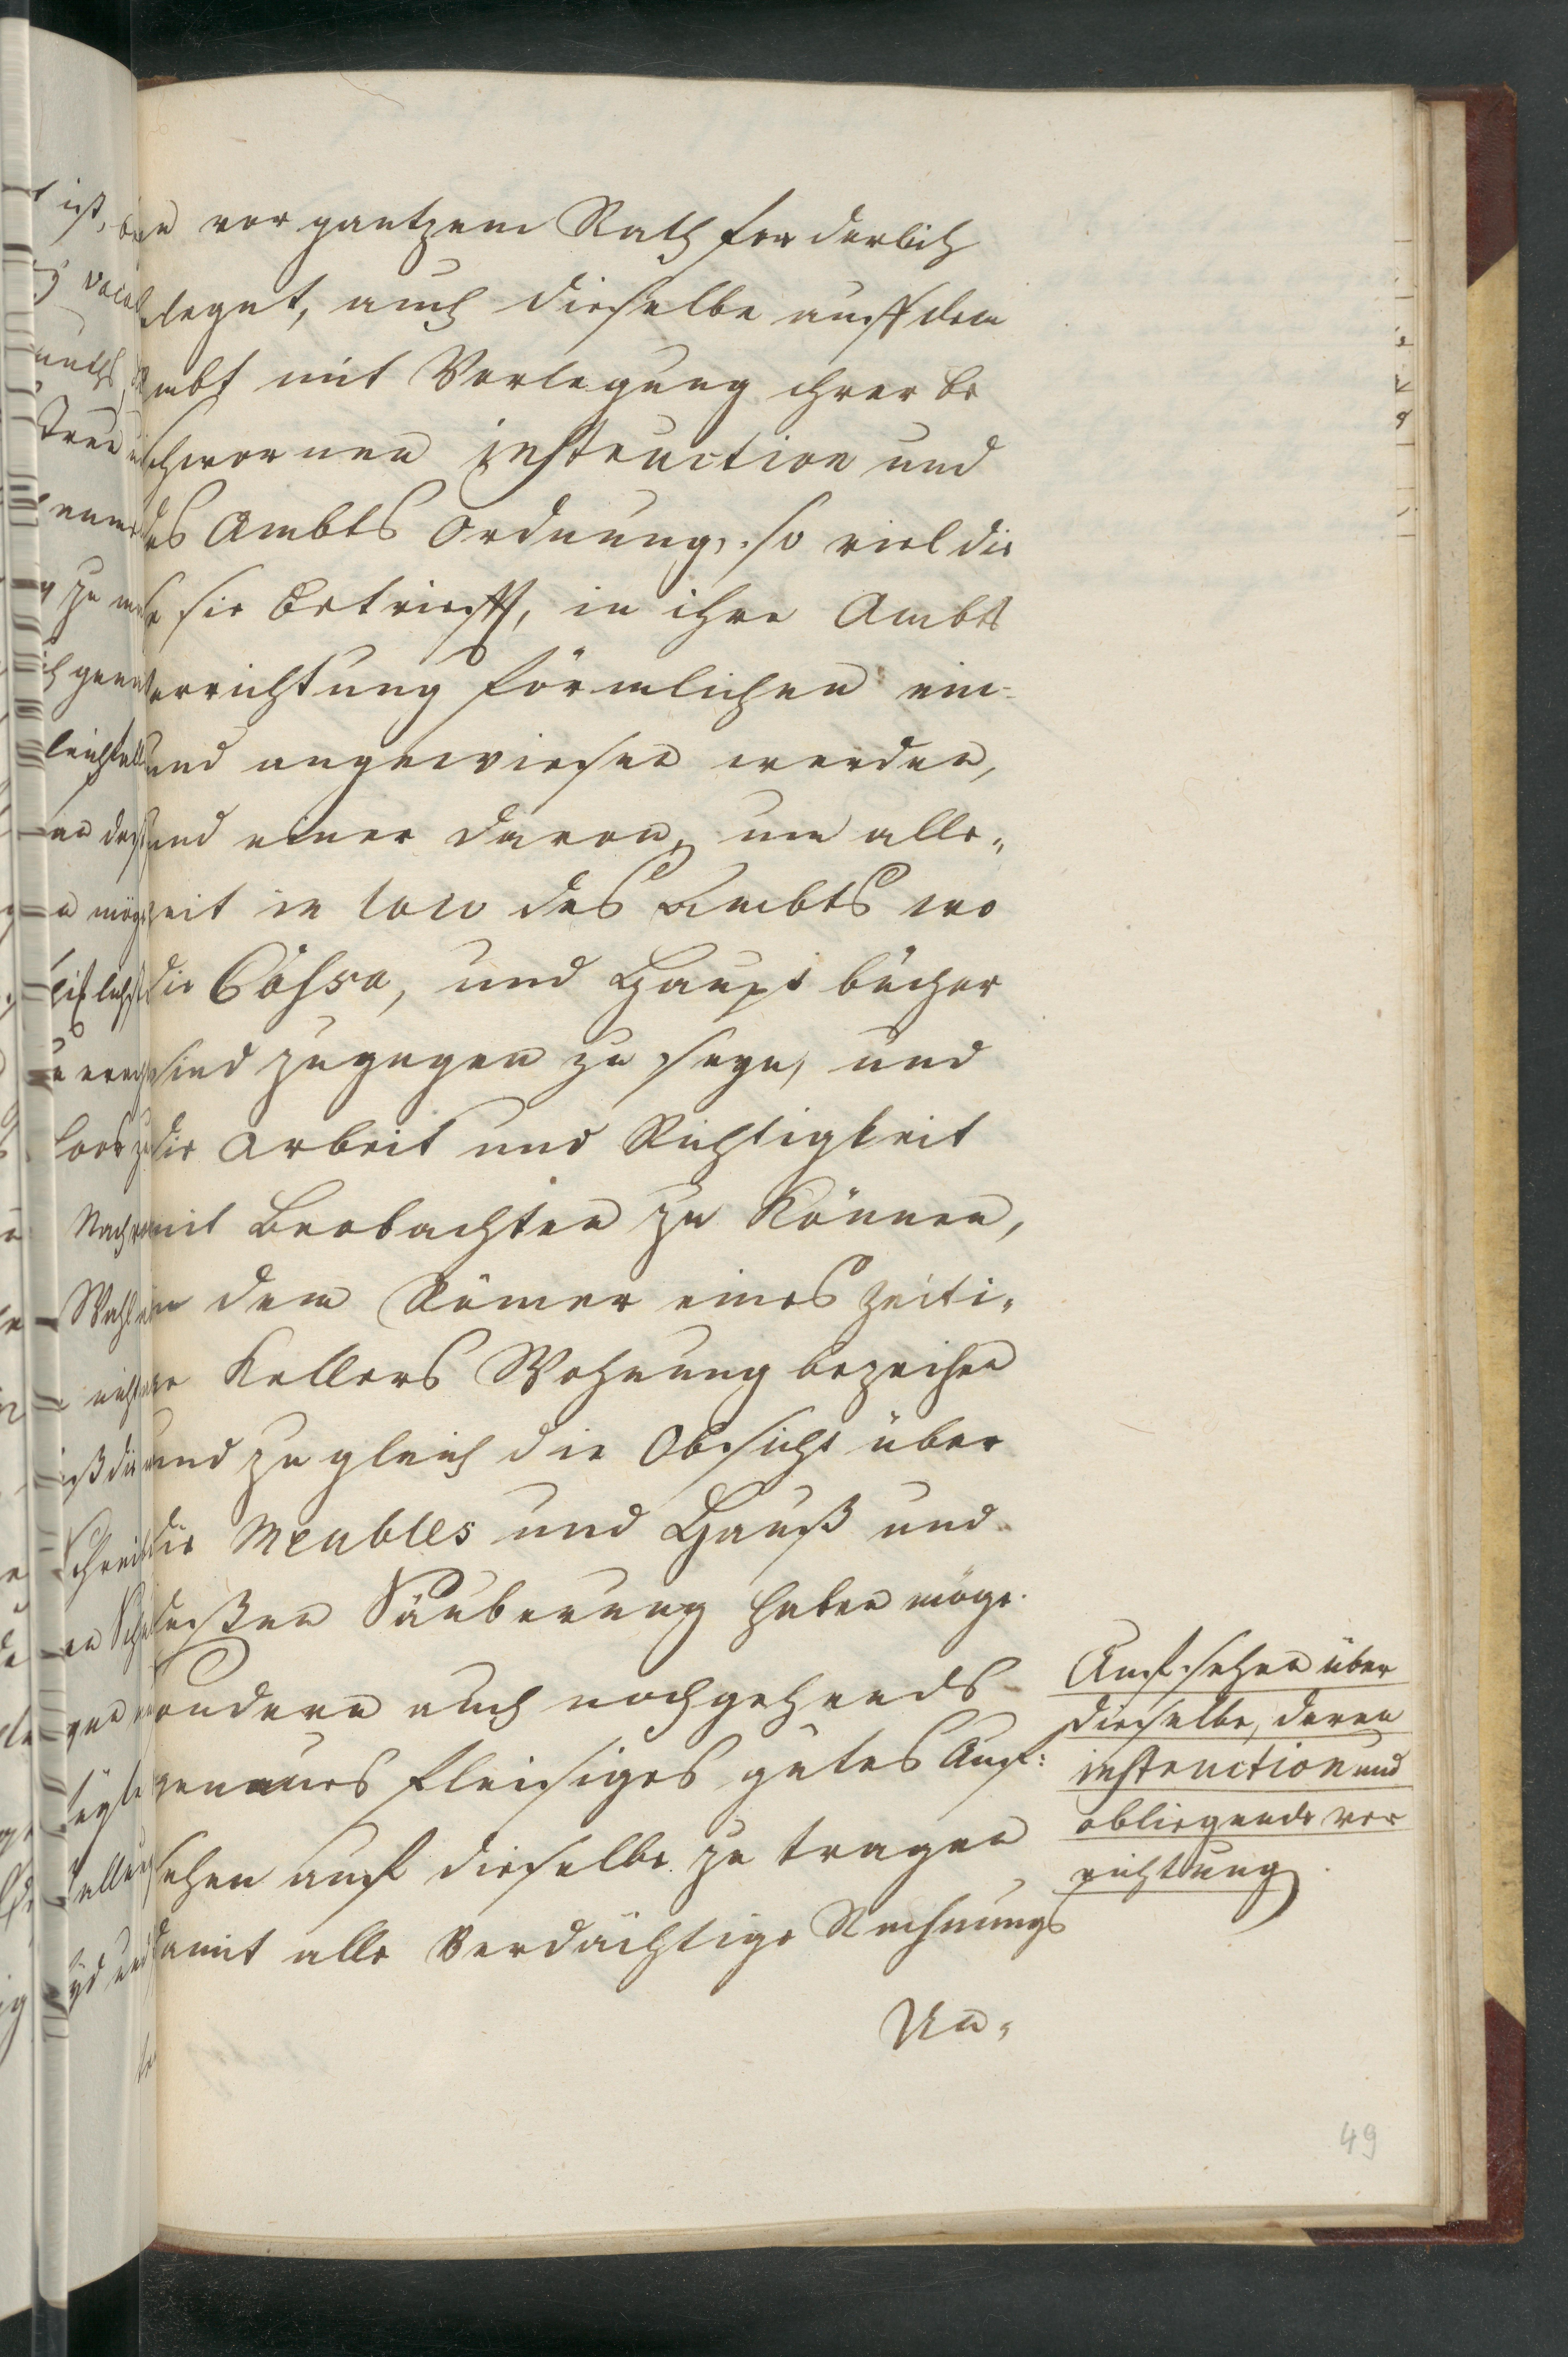 vor gantzem Rath forderlich
legnt, auch dieselbe auff dem
mbt mit Vorlegung ihrer be
schwornen instruction und
des Ambts Ordnung, so viel die
se sie betriefft, in ihre Ambts
errichtung förmlichen ein-
und angewiesen werden,
und einer davon, um alle„
zeit in loco des Ambts wo
die Cassa, und Haupt bücher
sind zugegen zu seyn, und
die Arbeit und Richtigkeit
mit Beobachten zu Können,
in dem Römer eines zeiti„
Kellers Wohnung beziehen
und zugleich die Obsicht über
die Meubles und Hauß und
deßen Säuberung haben möge.
sondern auch nachgehends
genaues fleisiges gutes Auf:
sehen auf dieselbe zu tragen
damit alle Verdächtige Rechnungs
Un„
Auf sehen über
dieselbe, deren
instruction und
obliegende ver
richtung
49